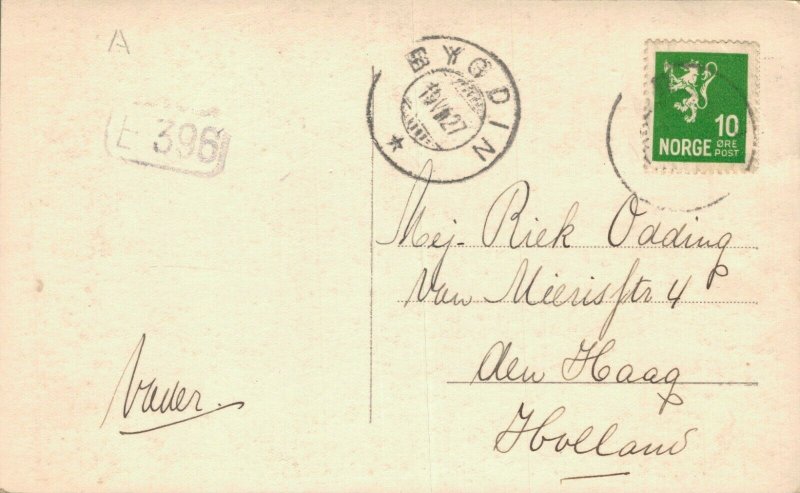 A
E 396
BYGDIN
19 VII 27
10
NORGE ØRE
POST
Mej. Riek Odding
van Mierisstr 4
den Haag
Holland
Vader.